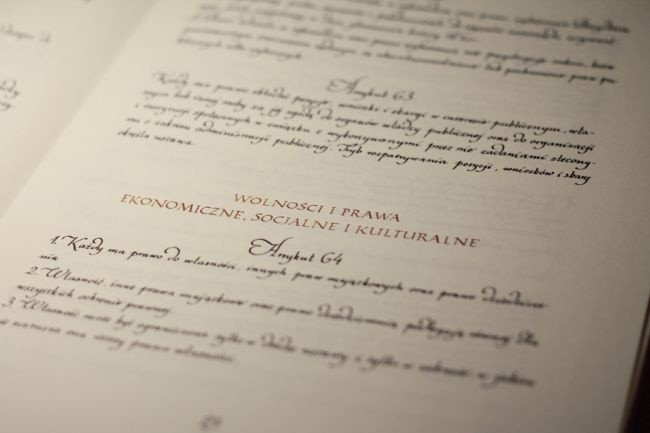 Artykuł 63
Każdy ma prawo składać petycje, wnioski i skargi w interesie publicznym, wła-
snym lub innej osoby za jej zgodą do organów władzy publicznej oraz do organizacji
i instytucji społecznych w związku z wykonywanymi przez nie zadaniami zlecony-
mi z zakresu administracji publicznej. Tryb rozpatrywania petycji, wniosków i skarg
określa ustawa.
WOLNOŚCI I PRAWA
EKONOMICZNE, SOCJALNE I KULTURALNE
Artykuł 64
1. Każdy ma prawo do własności, innych praw majątkowych oraz prawo dziedzicze-
nia.
2. Własność, inne prawa majątkowe oraz prawo dziedziczenia podlegają równej dla
wszystkich ochronie prawnej.
3. Własność może być ograniczona tylko w drodze ustawy i tylko w zakresie, w jakim
nie narusza ona istoty prawa własności.